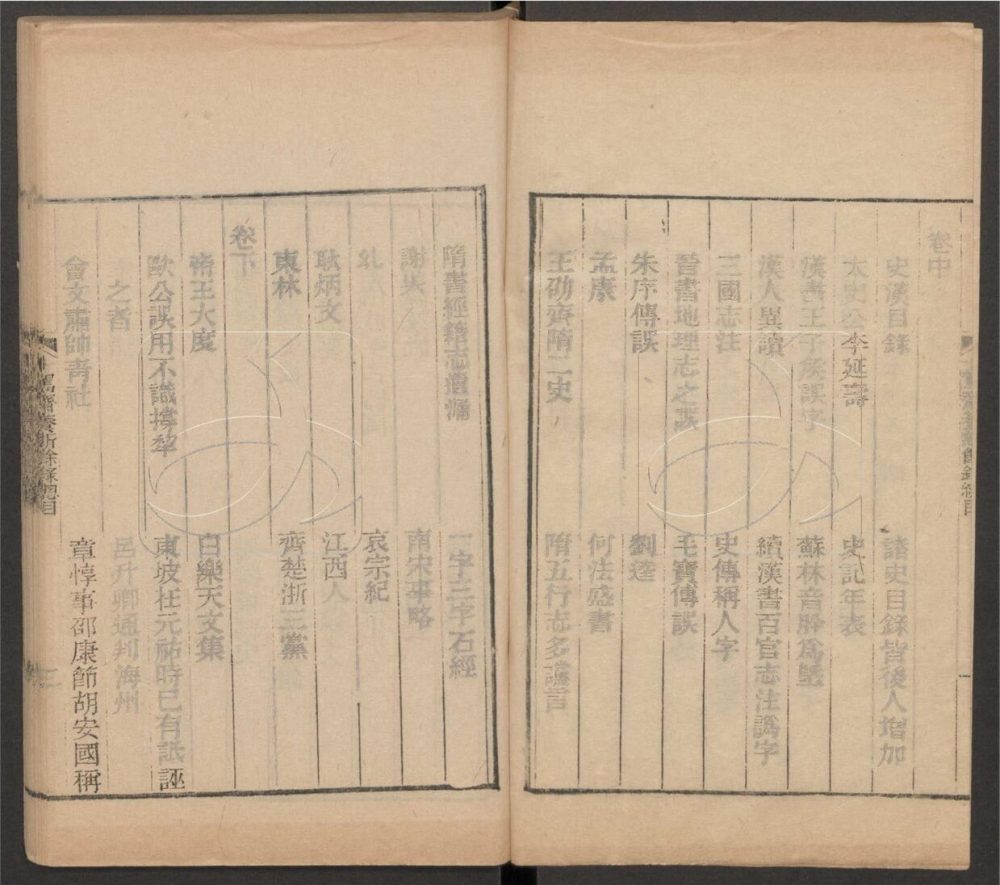 卷中
史漢目錄 諸史目錄皆後人增加
太史公李延壽 史記年表
漢書王子侯誤字 蘇林音
漢人異讀 續漢書百官志注譌字
三國志注 史傳稱人字
晉書地理志之誤 毛寶傳誤
朱序傳誤 劉逵
孟康 何法盛書
王劭齊隋二史 隋五行志多讖言
隋書經籍志遺漏 一字三字石經
謝 南宋事略
哀宗紀
耿炳文 江西人
東林 齊楚浙三黨
卷下
帝王大度 白樂天文集
歐公誤用不識撐犂 東坡在元祐時已有詆誣
之者 呂升卿通判海州
曾文肅帥青社 章惇事邵康節胡安國稱
十駕齋養新餘錄總目